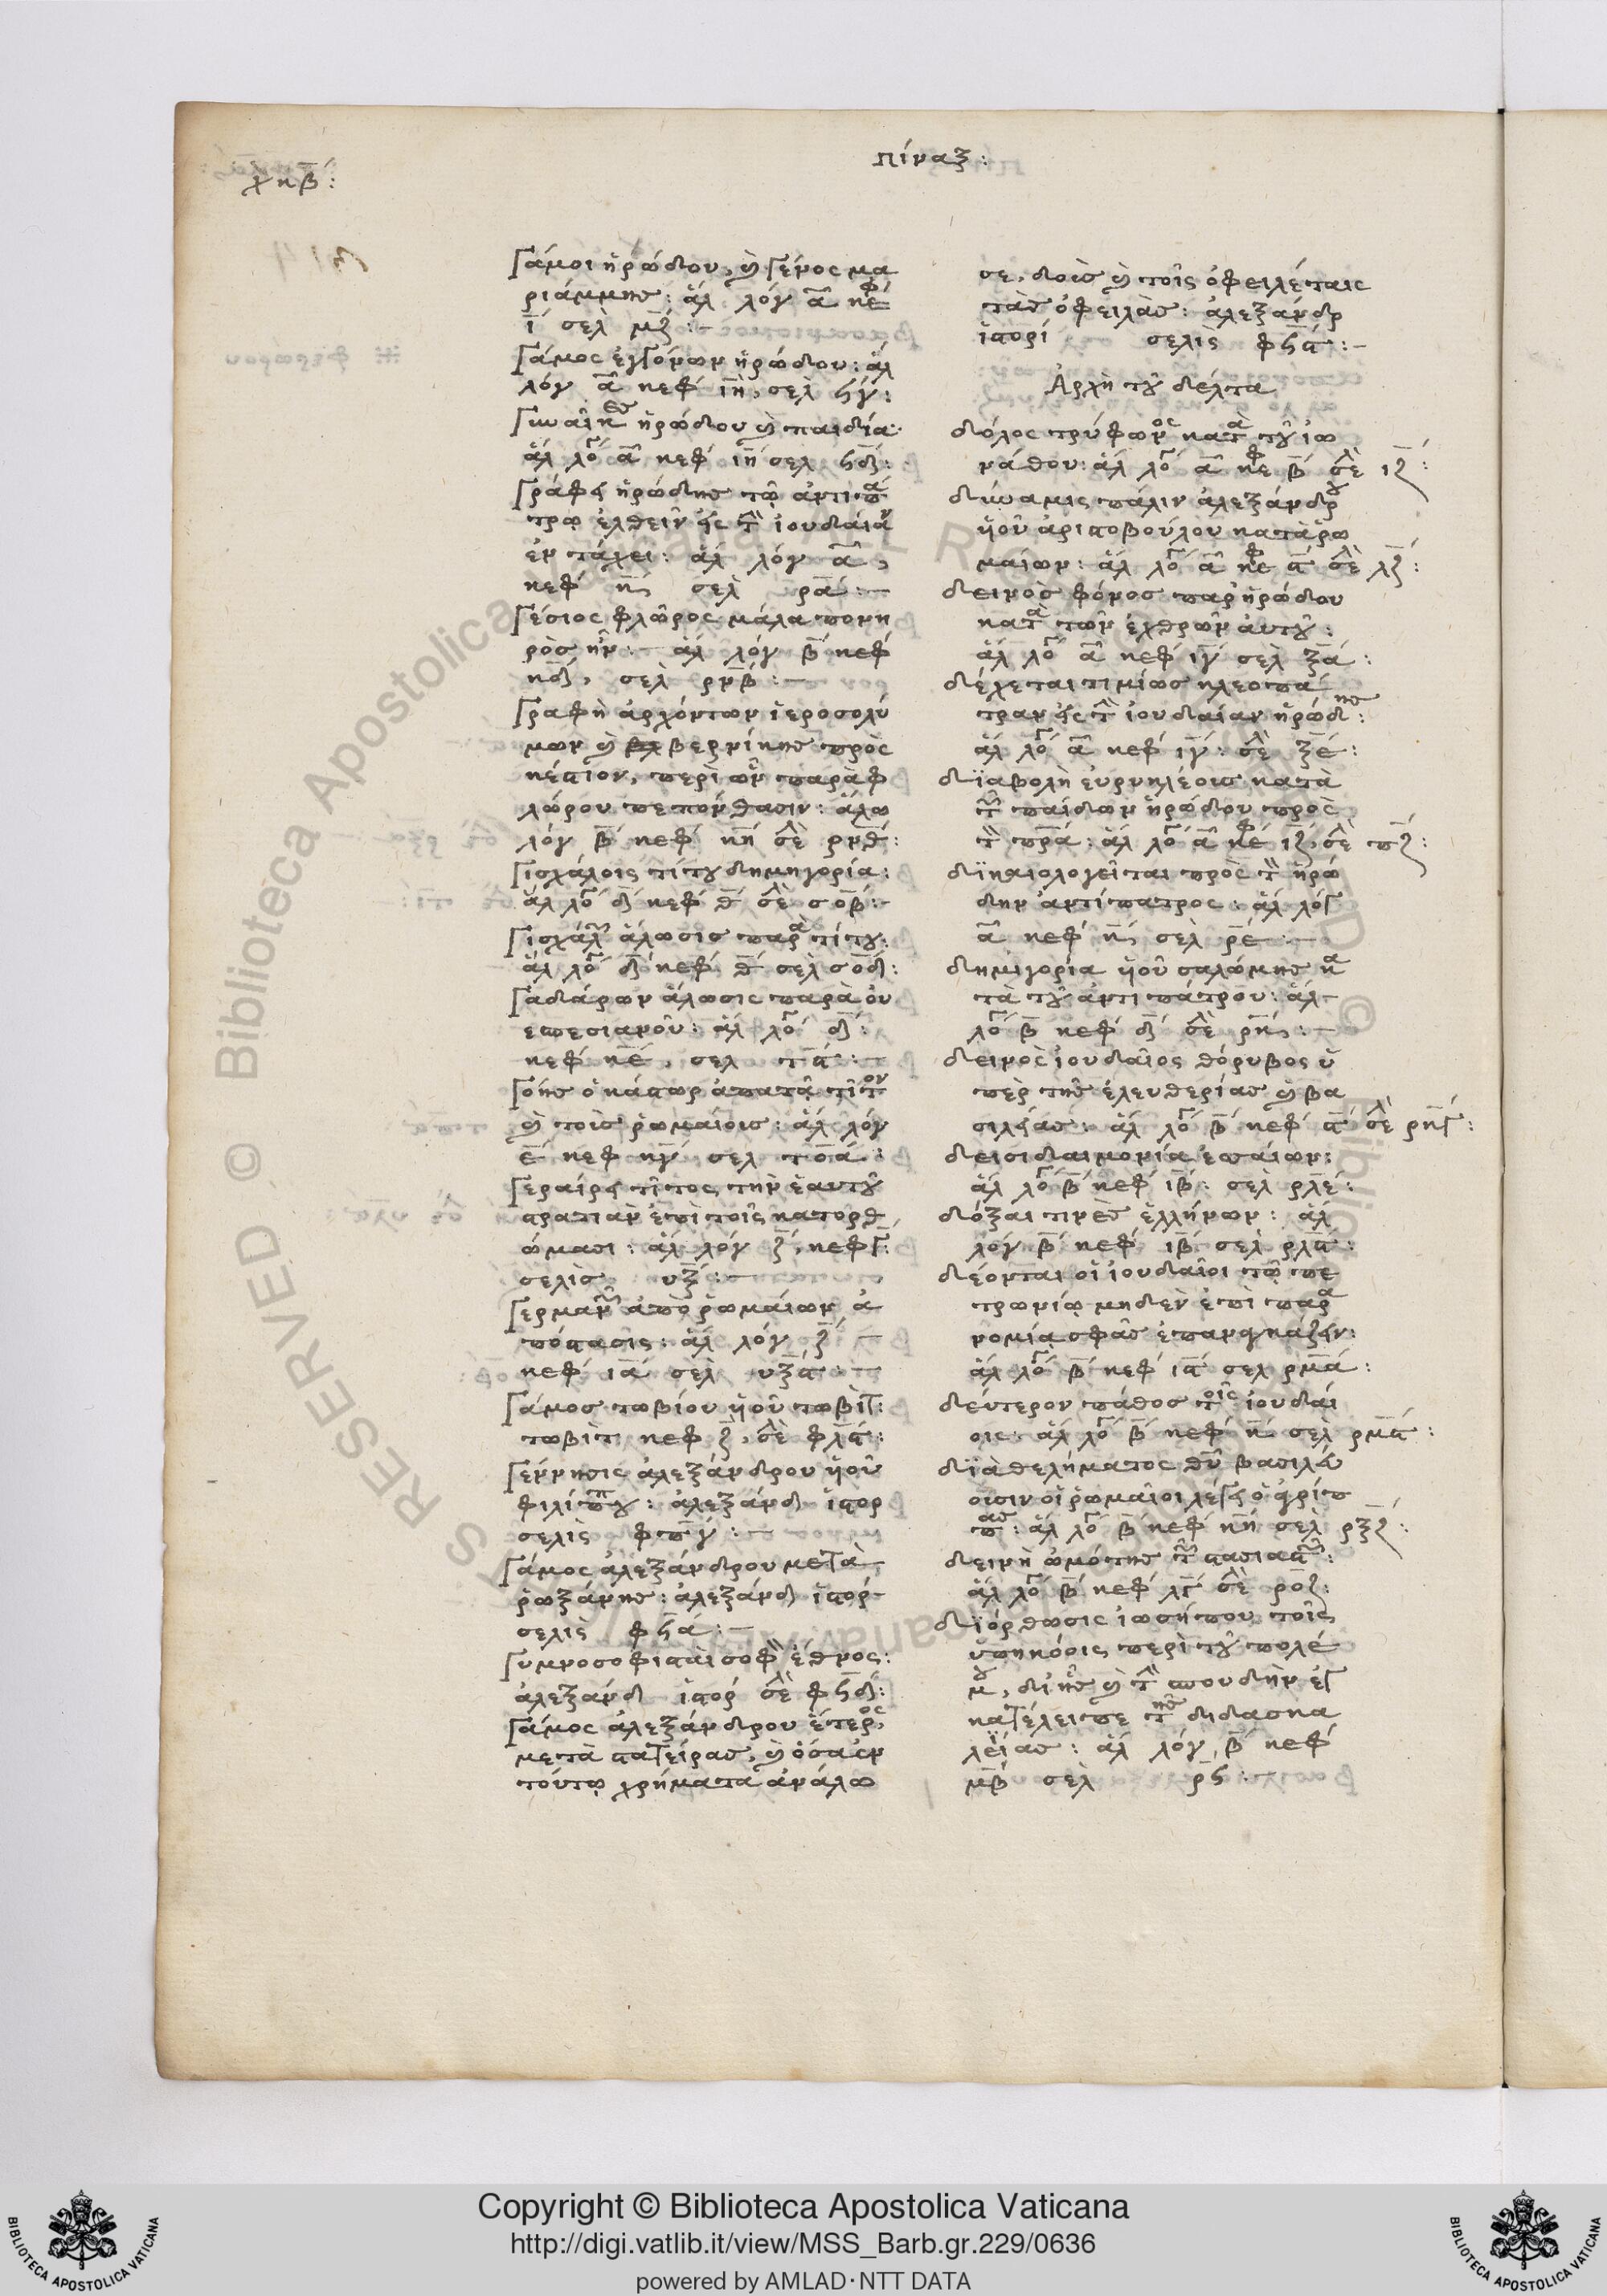 πίναξ:
χκβ:
γάμοι ἡρώδου, καὶ γένος μα
ριάμμης: ἁλ λόγ α κεφ
ι σελ μζ:-
γάμος ἐγγόνων ἡρώδου: ἁλ
λόγ α κεφ ιη, σελ ϟγ:
γυναῖκες ἡρώδου καὶ παιδία·
ἁλ λό α κεφ ιη σελ ϟδ:
γράφει ἡρώδης τῷ ἀντιπά
τρῳ ἐλθεῖν εἰς τὴν ἰουδαίαν
ἐν τάχει: ἁλ λόγ α,
κεφ κ σελ ρα:-
γέσιος φλῶρος μάλα πονη
ρὸς ἦν:- ἁλ λόγ β κεφ
κδ, σελ ρνβ:-
γραφὴ ἀρχόντων ἱεροσολύ
μων καὶ βερνίκης πρὸς
κέστιον, περὶ ὧν παρὰ φ
λώρου πεπόνθασιν: ἅλω
λόγ β κεφ κη σε ρνθ:
γισχάλοις τίτου δημηγορία:
ἁλ λό δ κεφ θ σε σοβ:-
γισχάλων ἅλωσις παρὰ τίτου:
ἁλ λό δ κεφ θ σελ σοδ:
γαδάρων ἅλωσις παρὰ οὐ
εσπεσιανοῦ: ἁλ λό δ:
κεφ κε, σελ τα:-
γόης ὁ κάστωρ ἀπατᾷ τίτον
καὶ τοὺς ῥωμαίους: ἁλ λόγ
ε κεφ κγ σελ τοα:
γεραίρει τίτος τὴν ἑαυτοῦ
στρατιὰν ἐπὶ τοῖς κατορθ
ώμασι: ἁλ λόγ ζ, κεφ γ:
σελὶς υξ:-
γερμανῶν ἀπὸ ῥωμαίων ἀ
πόστασις: ἁλ λόγ ζ -
κεφ ια σελ υξα:-
γάμος τωβίου υἱοῦ τωβίτ:
τωβὶτ κεφ ζ, σε φλα:
γέννησις ἀλεξάνδρου υἱοῦ
φιλίππου: ἀλεξάνδ ἱστορ
σελὶς φπγ:-
γάμος ἀλεξάνδρου μετὰ
ῥωξάνης: ἀλεξάνδ ἱστορ-
σελὶς φϟα:-
γυμνοσοφισταὶ σοφὸν ἔθνος:
ἀλεξάνδ ἱστορ σε φϟδ:
γάμος ἀλεξάνδρου ἕτερος,
μετὰ στατείρας, καὶ ὅσα ἐν
τούτῳ χρήματα ἀνάλω
σε, δοὺς καὶ τοῖς ὀφειλέταις
τὰς ὀφειλὰς: ἀλεξάνδρ
ἱστορί σελὶς φϟα:-
Ἀρχὴ τοῦ δέλτα
δόλος τρύφωνος κατὰ τοῦ ἰω
νάθου: ἁλ λό α κεφ β σελ ιζ:
δύναμις πάλιν ἀλεξάνδρου
υἱοῦ ἀριστοβούλου κατὰ ῥω
μαίων: ἁλ λό α κεφ α σελ λζ:
δεινὸς φόνος παρ' ἡρώδου
κατὰ τῶν ἐχθρῶν αὐτοῦ:
ἁλ λό α κεφ ιγ σελ ξα:
δέχεται τιμίως κλεοπά
τραν εἰς τὴν ἰουδαίαν ἡρώδης:
ἁλ λό α κεφ ιγ: σε ξε:
διαβολὴ εὐρυκλέους κατὰ
τῶν παίδων ἡρώδου πρὸς
τὸν πρα: ἁλ λό α κεφ ιζ, σε πζ:
δικαιολογεῖται πρὸς τὸν ἡρώ
δην ἀντίπατρος: ἁλ λόγ
α κεφ κ σελ ρε:-
δημιγορία υἱοῦ σαλώμης κα
τὰ τοῦ ἀντιπάτρου: ἁλ-
λό β κεφ δ σε ρκ:-
δεινὸς ἰουδαῖος θόρυβος ὑ
πὲρ τῆς ἐλευθερίας καὶ βα
σιλείας: ἁλ λό β κεφ α σε ρκγ:
δεισιδαιμονία ἐσσαίων:
ἁλ λό β κεφ ιβ: σελ ρλε:
δόξαι τινὲς ἑλλήνων: ἁλ
λόγ β κεφ ιβ σελ ρλα:
δέονται οἱ ἰουδαῖοι τῷ πε
τρωνίῳ μηδὲν ἐπὶ παρα
νομία σφᾶς ἐπαναγκάζειν:
ἁλ λό β κεφ ια σελ ρμα:
δεύτερον πάθος τοῖς ἰουδαί
οις: ἁλ λό β κεφ κ σελ ρμα:
διὰ θελήματος θῦ βασιλεύ
ουσιν οἱ ῥωμαῖοι λέγει ὁ ἀγρίπ
πας: ἁλ λό β κεφ κη σελ ρξζ:
δεινὴ ὠμότης τῶν στασιαστῶν:
ἁλ λό β κεφ λγ σε ροζ:
διόρθωσις ἰωσήπου τοῖς
ὑπηκόοις περὶ τοῦ πολέ
μου, δι' ἧς καὶ τὴν σπουδὴν ἐγ
κατέλειπε τῆς διδασκα
λείας: ἁλ λόγ, β κεφ
μβ σελ ρϟ:-
Copyright © Biblioteca Apostolica Vaticana
http://digi.vatlib.it/view/MSS_Barb.gr.229/0636
powered by AMLAD·NTT DATA